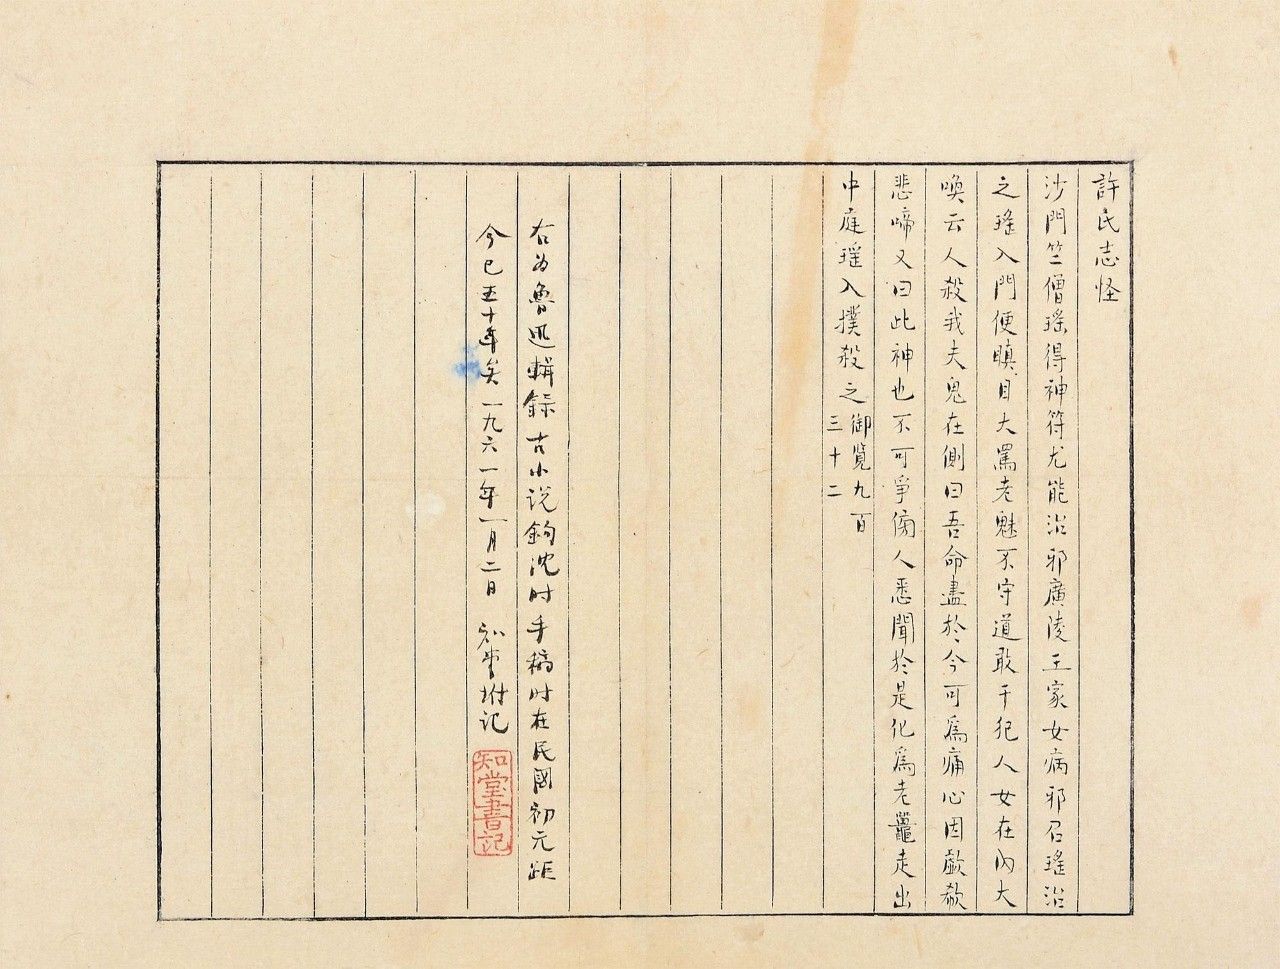 許氏志怪
沙門竺僧瑤得神符尤能治邪廣陵王家女病邪召瑤治
之瑤入門便瞋目大罵老魅不守道敢干犯人女在內大
喚云人殺我夫鬼在側曰吾命盡於今可爲痛心因歔欷
悲啼又曰此神也不可爭傍人悉聞於是化爲老鼉走出
中庭瑤入撲殺之御覽九百
三十二
右为魯迅輯録古小说鉤沈时手稿时在民國初元距
今已五十年矣一九六一年一月二日 知堂坿记
知堂書記